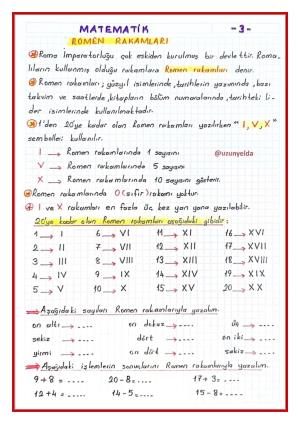 MATEMATİK -3-
ROMEN RAKAMLARI
Roma İmparatorluğu çok eskiden kurulmuş bir devlettir. Roma-
lıların kullanmış olduğu rakamlara Romen rakamları denir.
Romen rakamları; yüzyıl isimlerinde, tarihlerin yazımında, bazı
takvim ve saatlerde, kitapların bölüm numaralarında, tarihteki li-
der isimlerinde kullanılmaktadır.
1'den 20'ye kadar olan Romen rakamları yazılırken "I, V, X"
sembolleri kullanılır.
I → Romen rakamlarında 1 sayısını @uzunyelda
V → Romen rakamlarında 5 sayısını
X → Romen rakamlarında 10 sayısını gösterir.
Romen rakamlarında 0 (sıfır) rakamı yoktur.
I ve X rakamları en fazla üç kez yan yana yazılabilir.
20'ye kadar olan Romen rakamları aşağıdaki gibidir:
1 → I 6 → VI 11 → XI 16 → XVI
2 → II 7 → VII 12 → XII 17 → XVII
3 → III 8 → VIII 13 → XIII 18 → XVIII
4 → IV 9 → IX 14 → XIV 19 → XIX
5 → V 10 → X 15 → XV 20 → XX
Aşağıdaki sayıları Romen rakamlarıyla yazalım.
on altı → .... on dokuz → .... üç → ....
sekiz → .... dört → .... on iki → ....
yirmi → .... on dört → .... on sekiz → ....
Aşağıdaki işlemlerin sonuçlarını Romen rakamlarıyla yazalım.
9+8 = ..... 20-8 = ..... 17+3 = ....
12+4 = ..... 14-5 = ..... 15-8 = ....